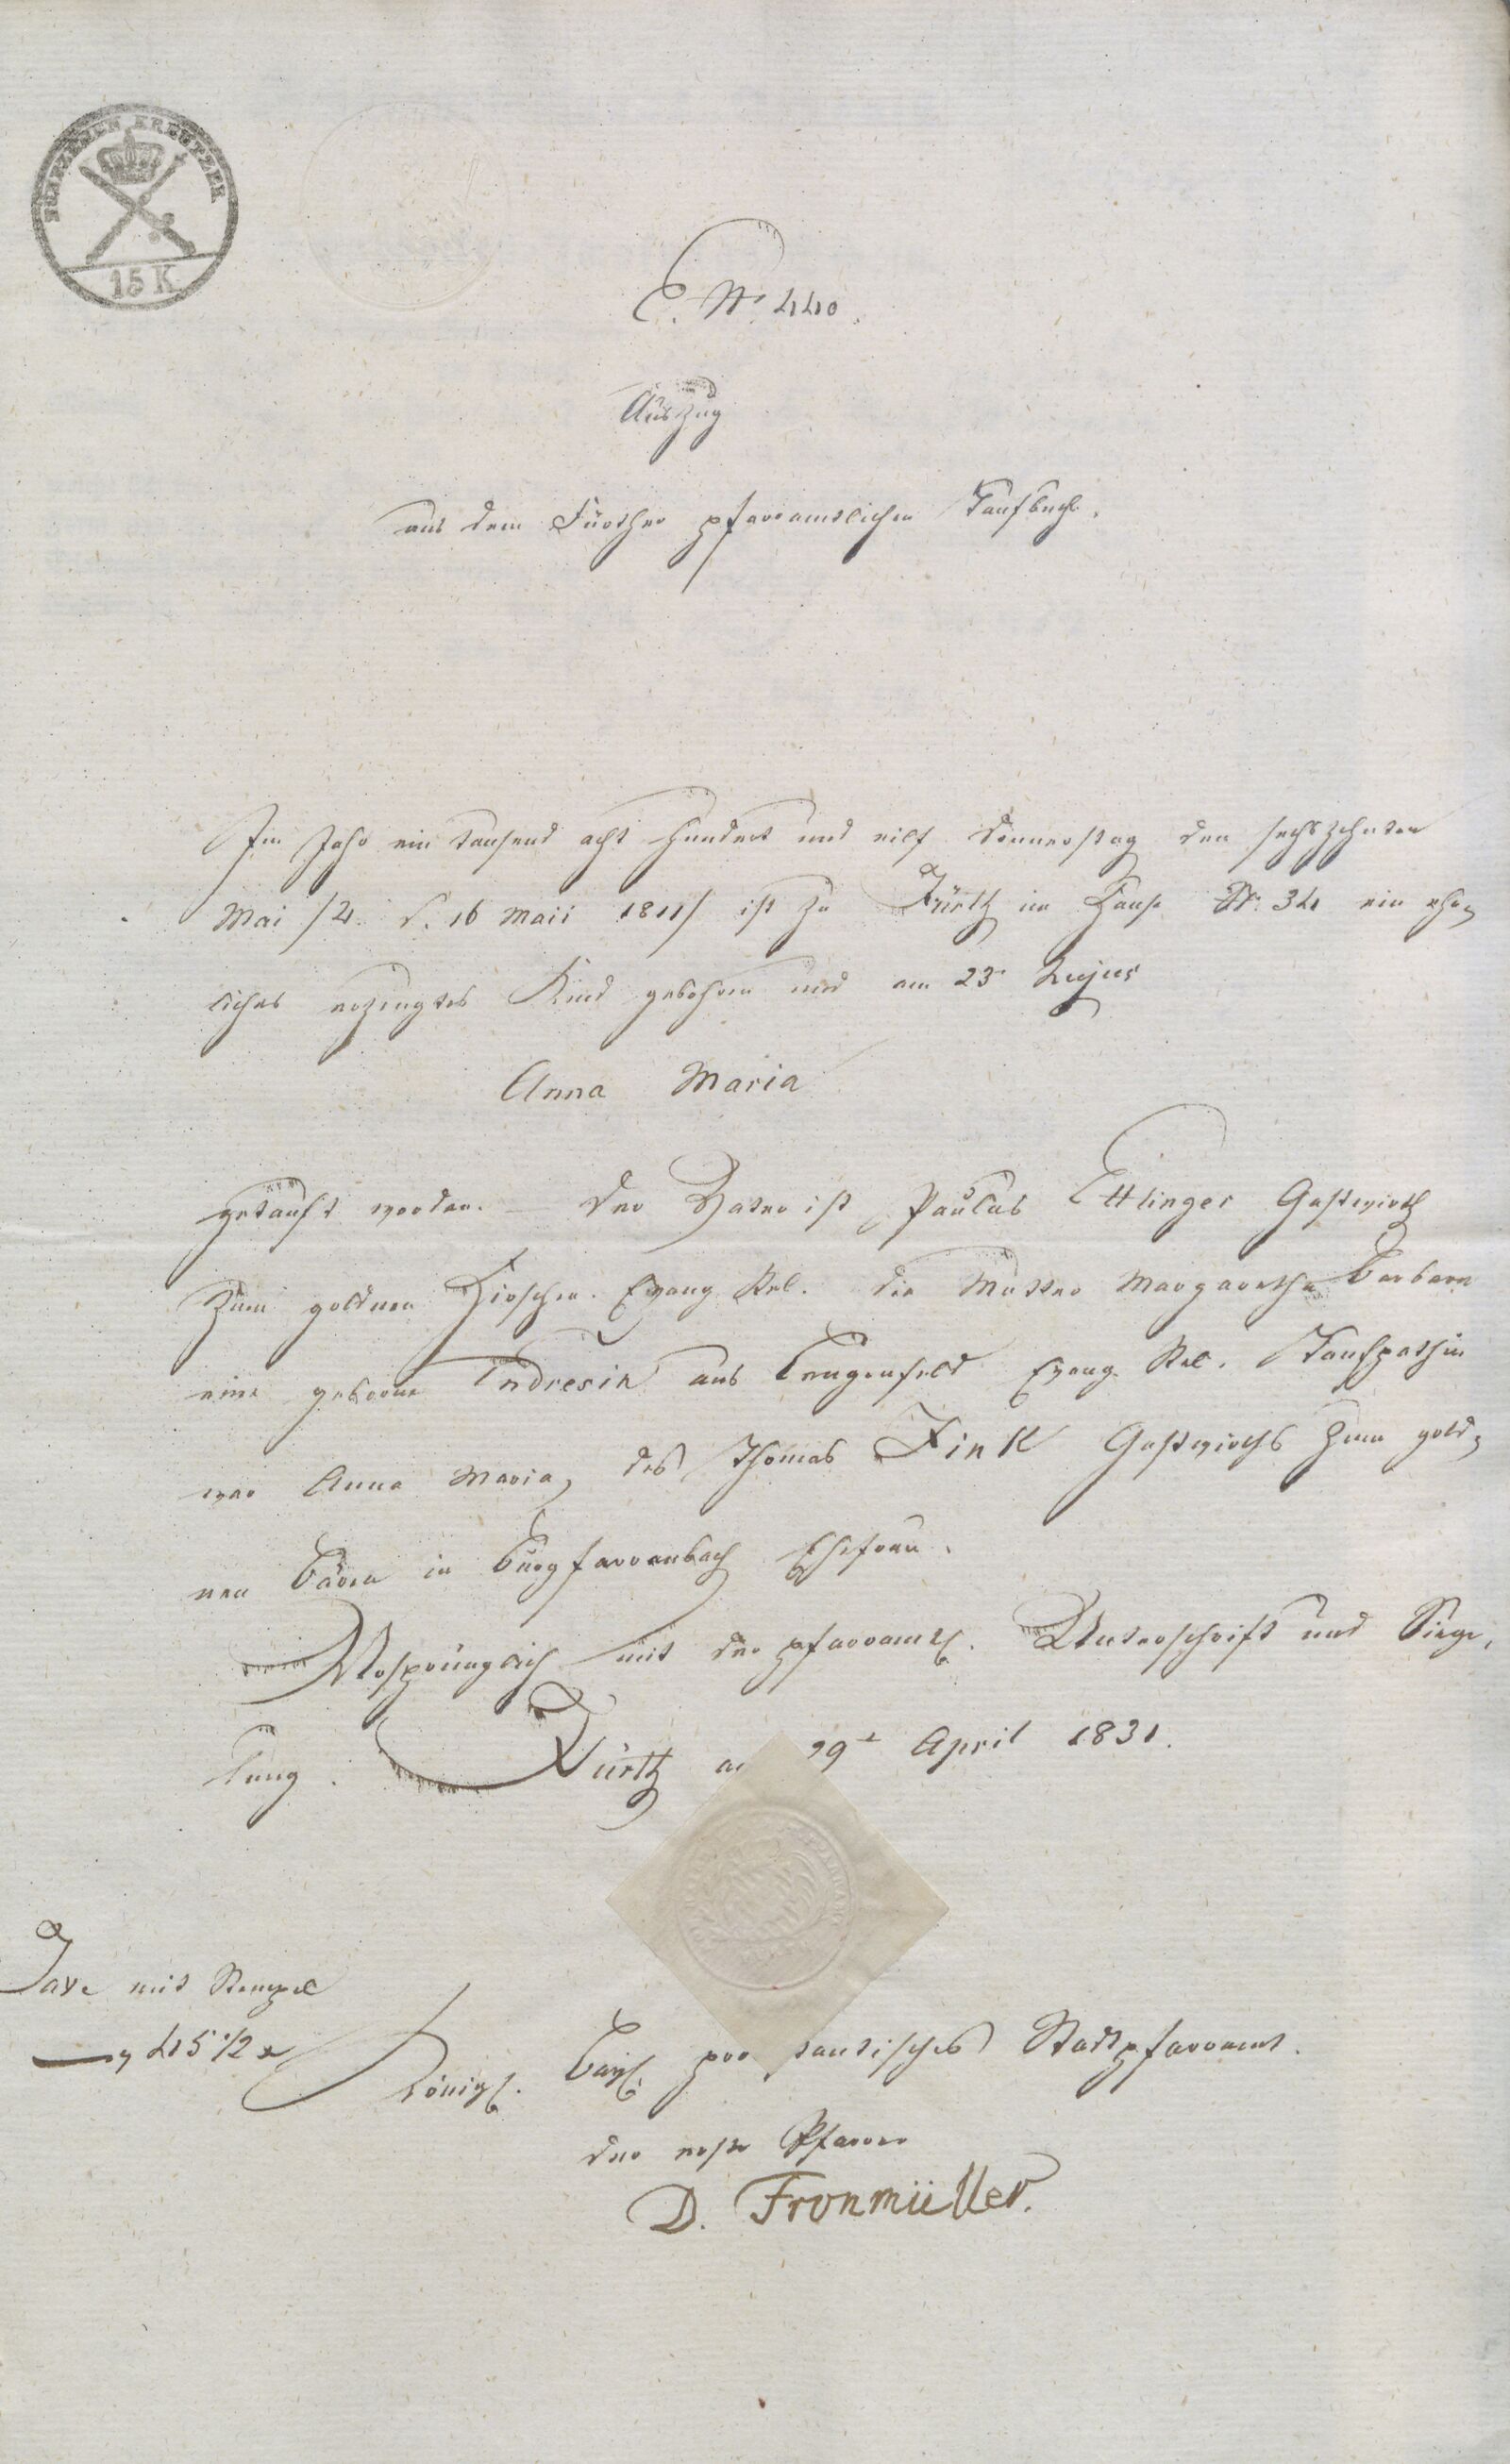 FÜNFZEHEN KREUTZER
15 K
E. Nr. 440.
Auszug
aus dem Fürther pfarramtlichen Taufbuche.
Im Jahr ein tausend acht hundert und eilf Donnerstag den sechszehnten
Mai /: d. 16 Maii 1811/ ist zu Fürth im Hause Nr. 34 ein ehe-
liches erzeugtes Kind gebohren und am 23. hujus
Anna Maria
getauft worden. – Der Vater ist Paulus Ettlinger Gastwirth
zum goldnen Hirschen. Evang. Rel. Die Mutter Margaretha Barbara
eine geborne Endresin aus Lengenfeld Evang. Rel. Taufpathin
war Anna Maria, des Thomas Fink Gastwirths zum gold-
nen Bären in Burgfarrenbach Ehefrau.
Ursprünglich mit der pfarramtl. Unterschrift und Siege-
lung. Fürth a 29t April 1831.
Taxe mit Stempel
45 1/2 x
Königl. Bayl. pro tantisches Stadtpfarramt.
der erste Pfarrer
D. Fronmüller.